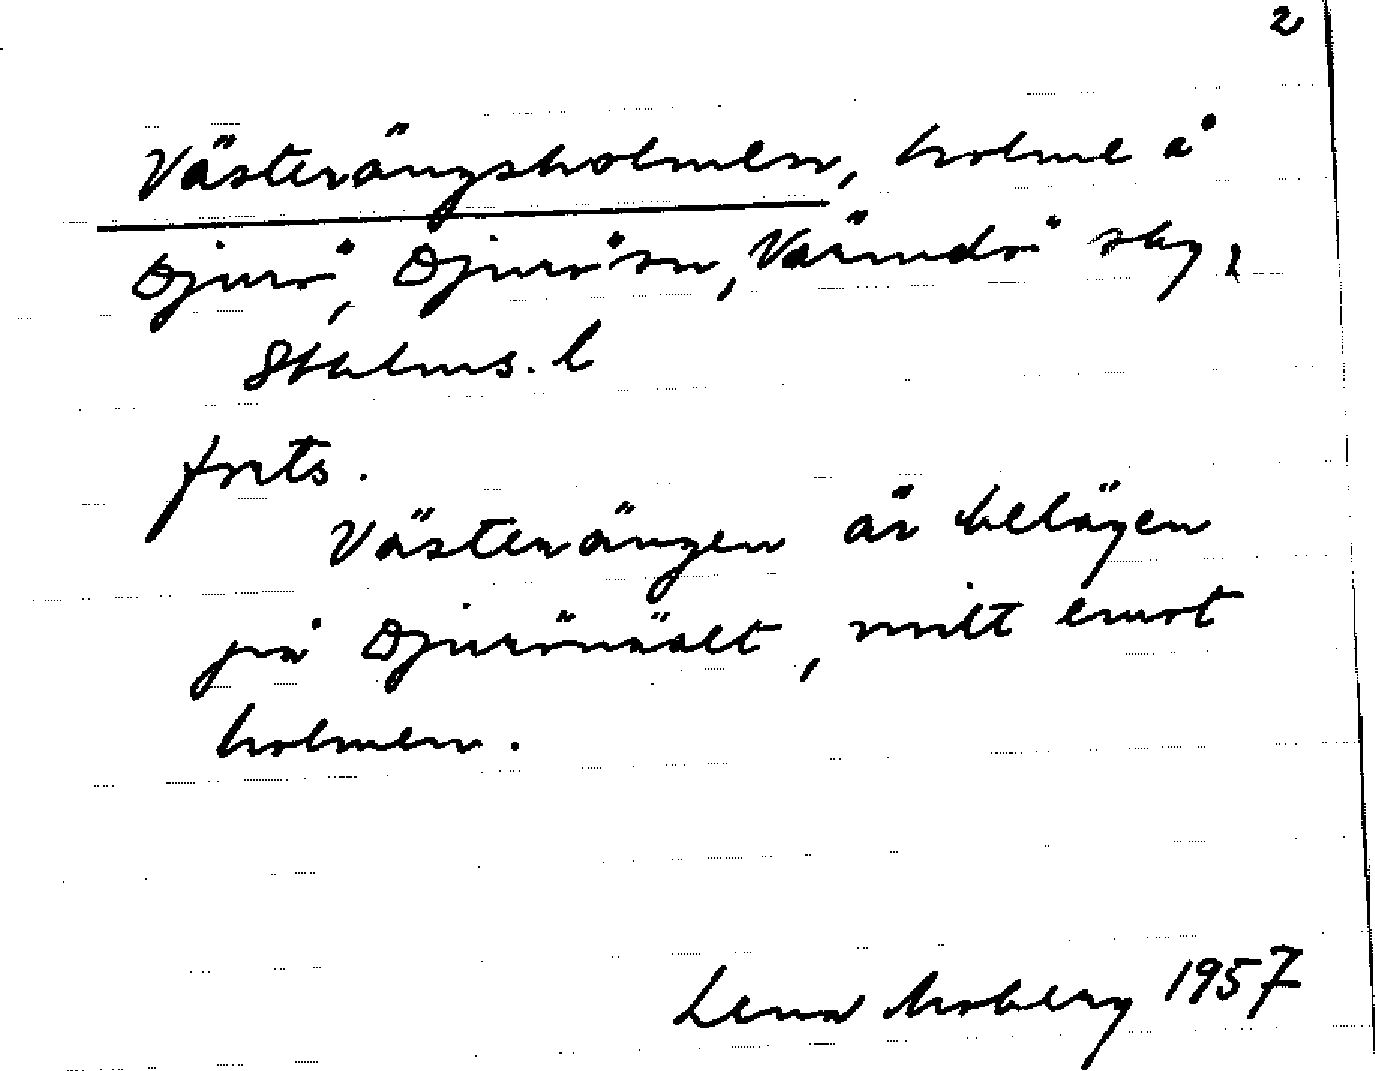 2
Västerängsholmen, holme å
Djurö, Djurö sn, Värmdö sky,
Stholms. l
forts.
Västerängen är belägen
på Djurönäset, mitt emot
holmen.
Lena Moberg 1957